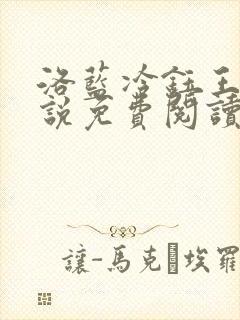 洛藍冷鈺王
說免費閱讀
讓-馬克·埃羅